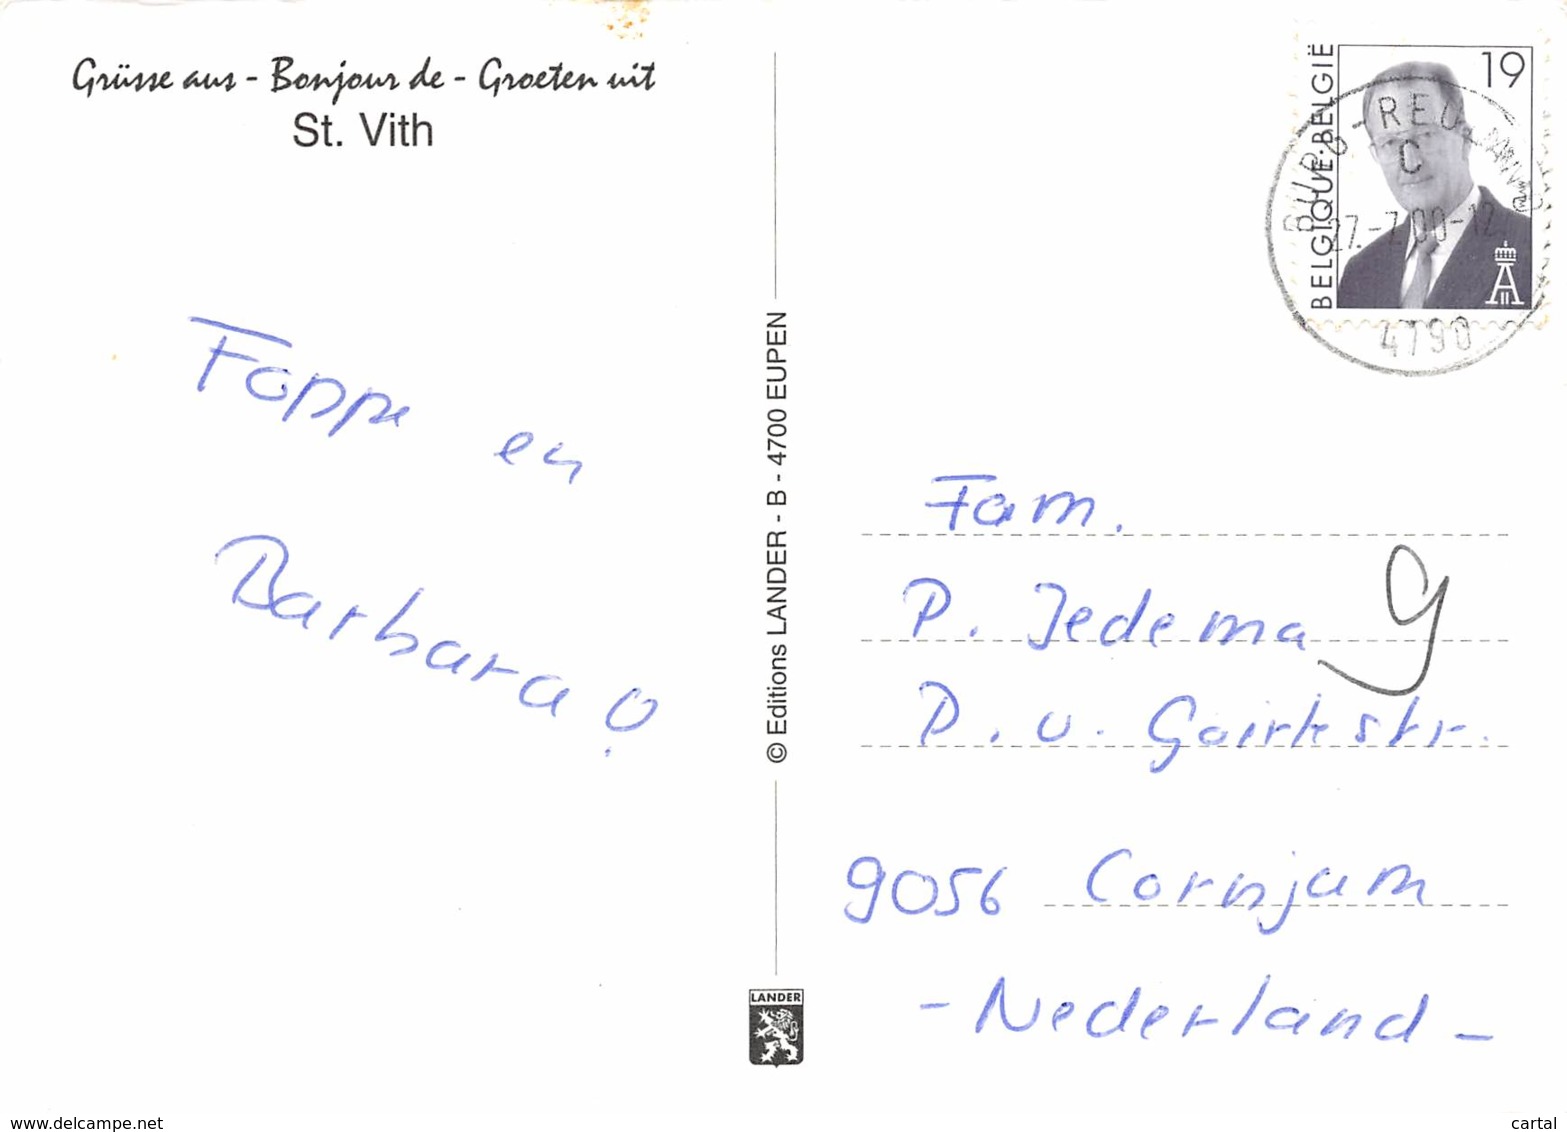 Grüsse aus - Bonjour de - Groeten uit
St. Vith
Foppe en
Barbara
© Editions LANDER - B - 4700 EUPEN
LANDER
BELGIQUE·BELGIË
19
BURG-REULAND
C
27.-7.00-12
4790
Fam.
P. Jedema
9
P. v. str.
9056 Cornjum
- Nederland -
www.delcampe.net
cartal